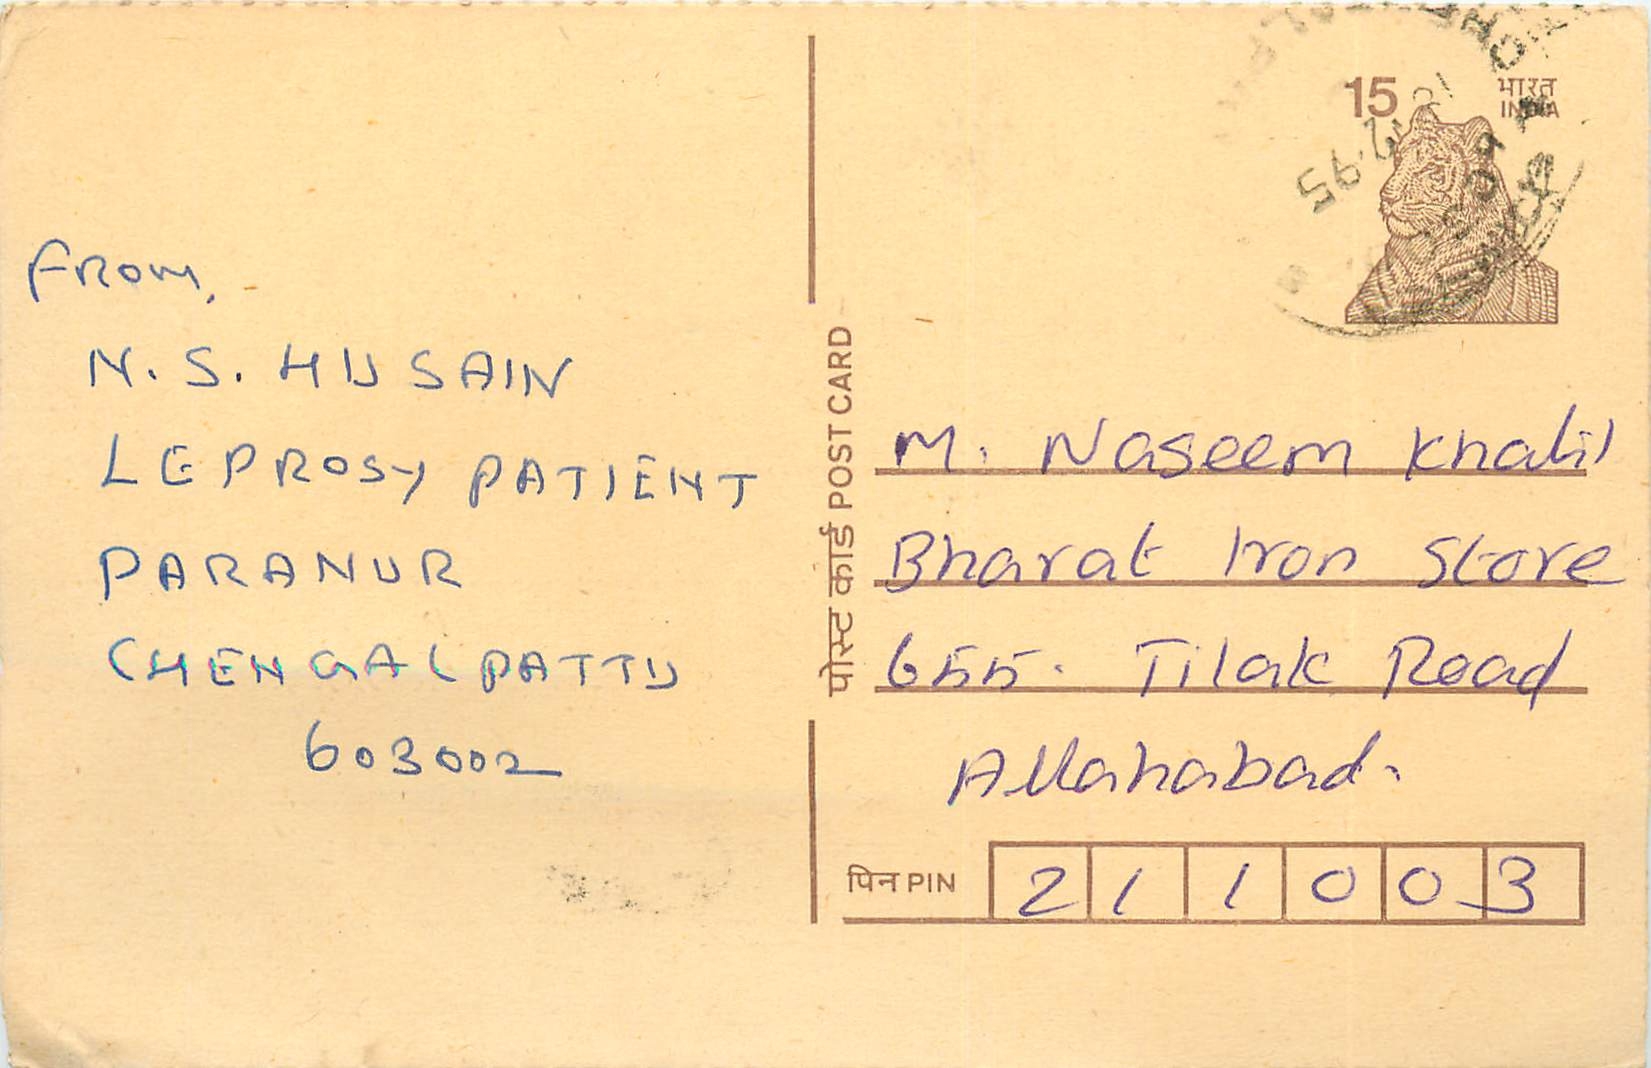 From,
N. S. HUSAIN
LEPROSY PATIENT
PARANUR
CHENGALPATTU
603002
पोस्ट कार्ड POST CARD
15 भारत
INDIA
2.95
M. Naseem Khalil
Bharat Iron Store
655. Tilak Road
Allahabad.
पिन PIN 211003